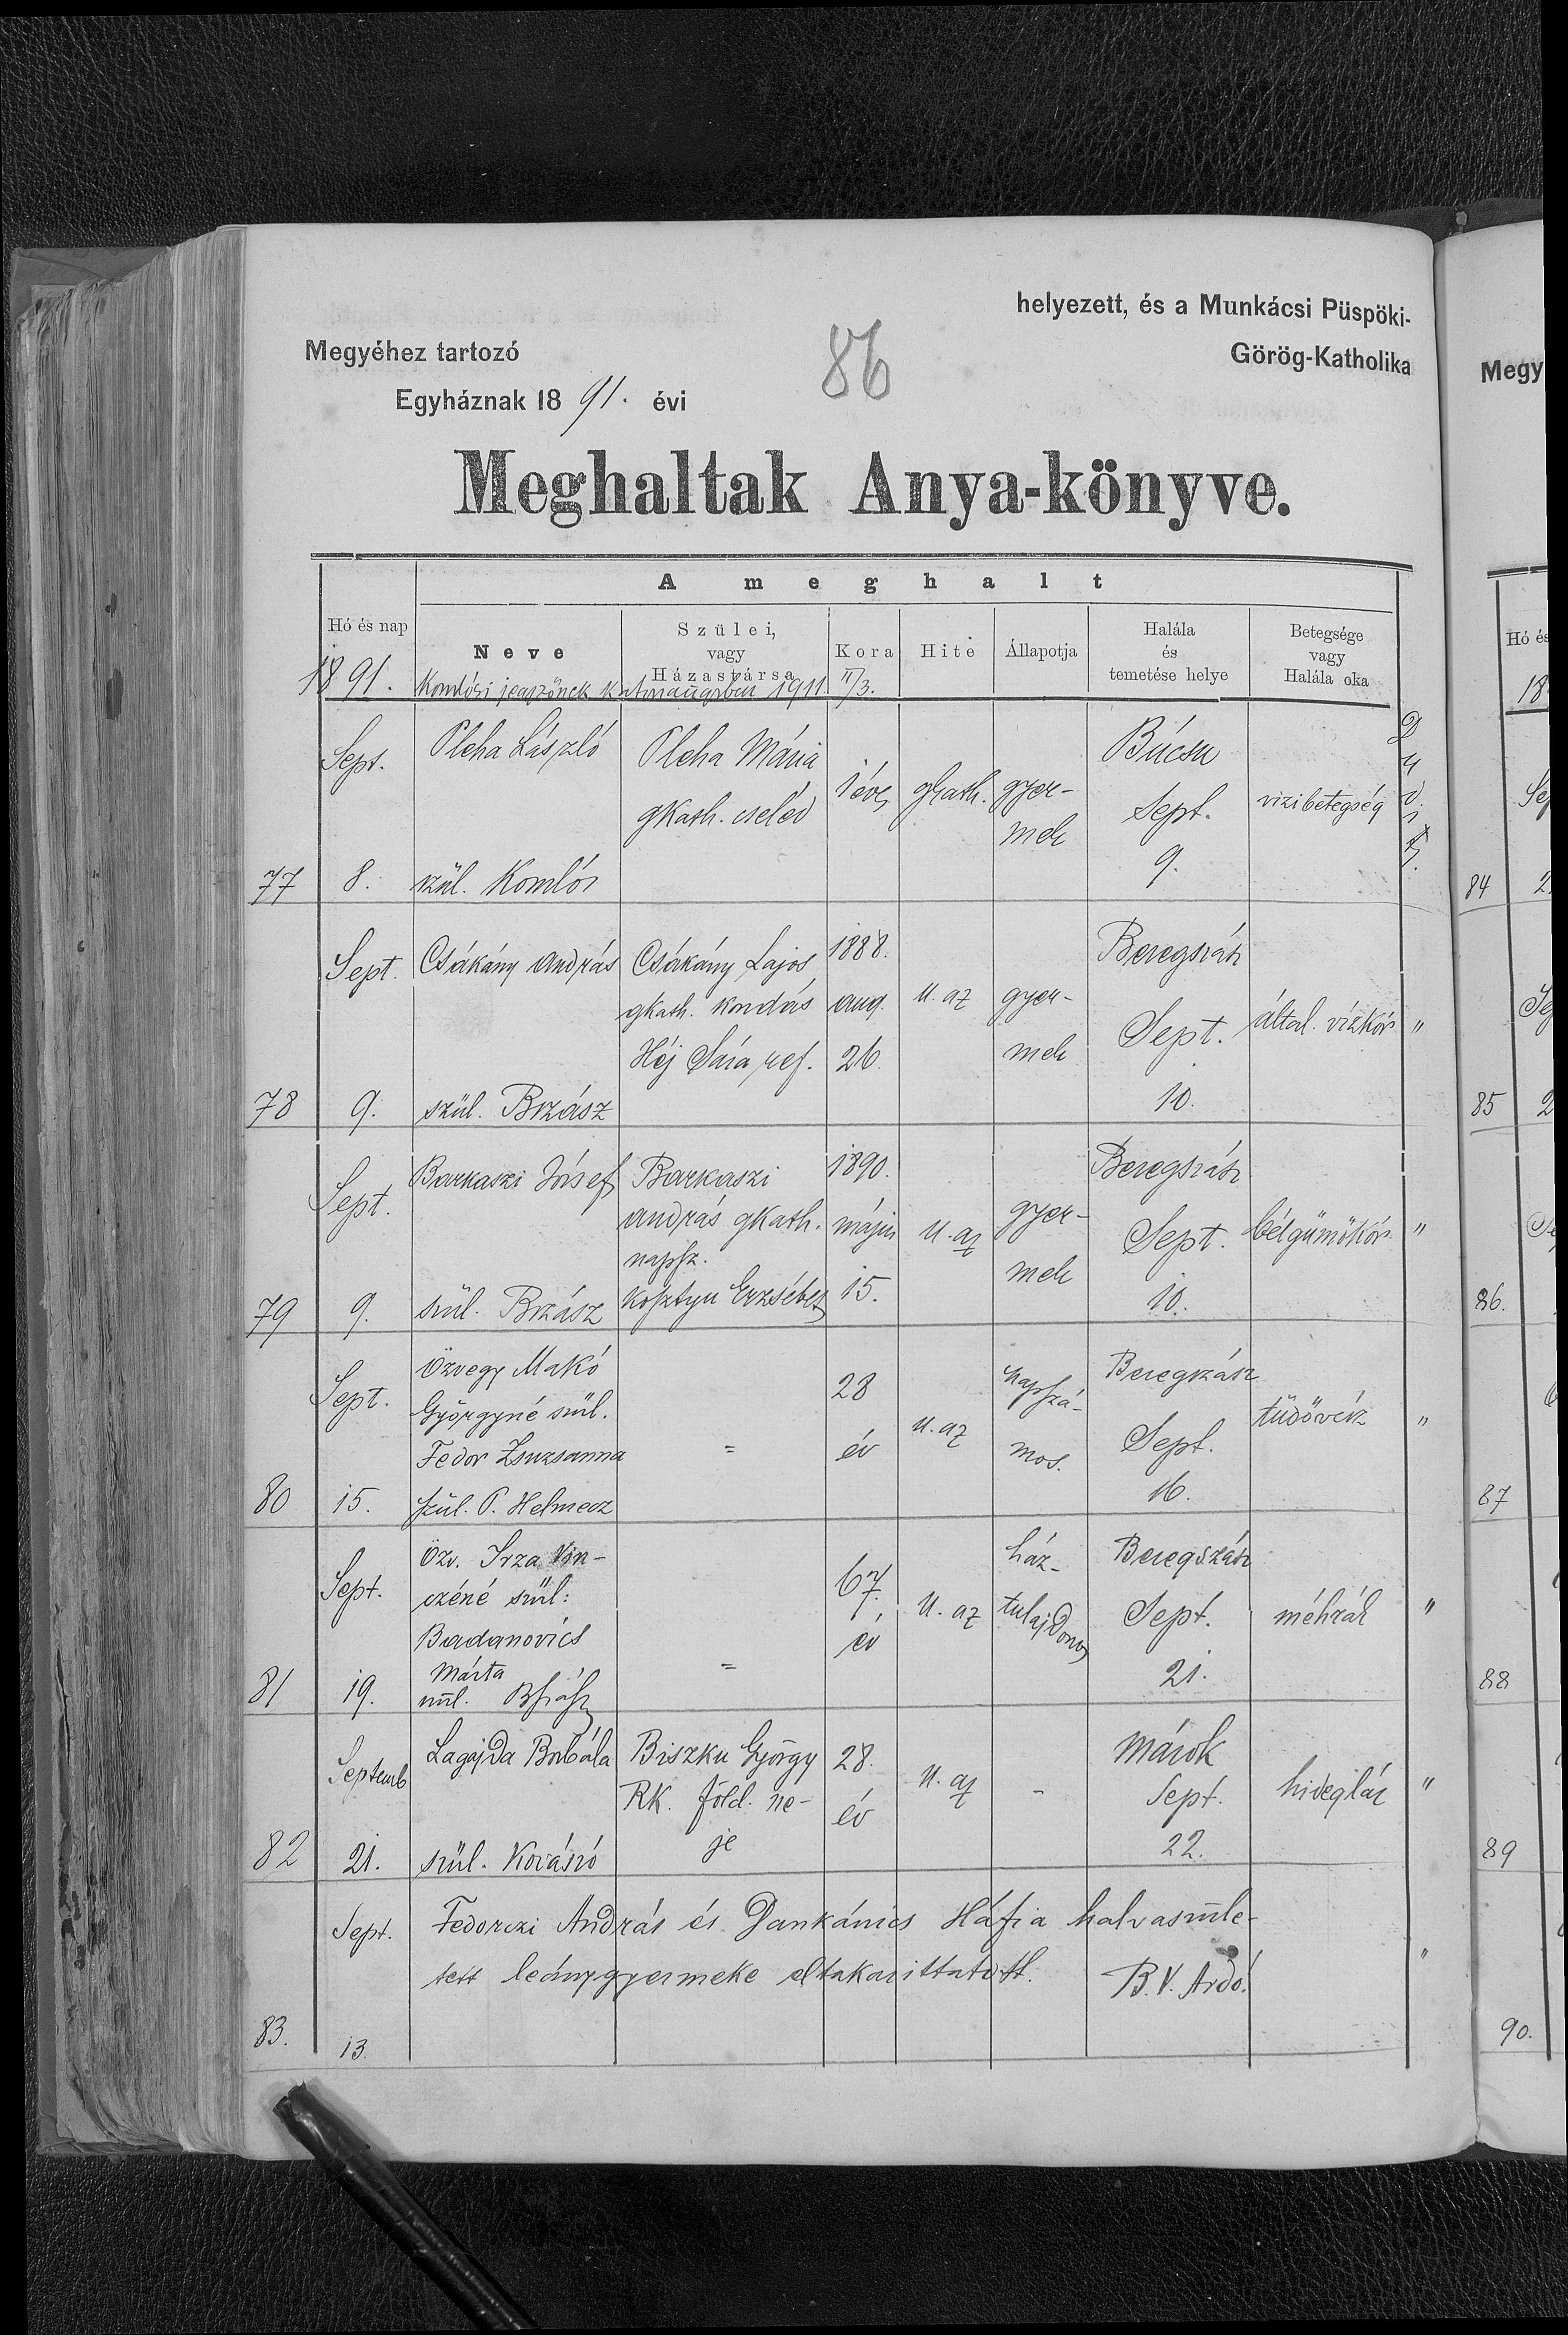 helyezett, és a Munkácsi Püspöki-
Megyéhez tartozó
86
Görög-Katholika
Egyháznak 1891. évi
Meghaltak Anya-könyve.
A meghalt
Hó és nap
Neve
Szülei,
vagy
Házastársa
Kora
Hite
Állapotja
Halála
és
temetése helye
Betegsége
vagy
Halála oka
1891.
Komlósi 1911 II/3.
77
Sept.
8.
Pleha László
szül. Komlós
Pleha Mária
gkath. cseléd
1 éves
gkath.
gyer-
mek
Búcsu
Sept.
9.
vizibetegség
78
Sept.
9.
Csákány András
szül. Brzász
Csákány Lajos
gkath. kondás
Héj Sára ref.
1888.
aug.
26.
u. az
gyer-
mek
Beregszász
Sept.
10.
által. vízkór
"
79
Sept.
9.
Barkaszi József
szül. Brzász
Barkaszi
András gkath.
napsz.
Kosztyu Erzsébet
1890.
május
15.
u. az
gyer-
mek
Beregszász
Sept.
10.
bélgümőkór
"
80
Sept.
15.
Özvegy Makó
Györgyné szül.
Fedor Zsuzsanna
szül. P. Helmecz
=
28
év
u. az
napszá-
mos.
Beregszász
Sept.
16.
tüdővész
"
81
Sept.
19.
Özv. Irza Vin-
czéné szül:
Badanovics
Márta
szül. Bszász
=
67.
év
u. az
ház-
tulajdonos
Beregszász
Sept.
21.
méhrák
"
82
Septemb
21.
Lagajda Borbála
szül. Kovászó
Biszku György
RK. föld. ne-
je
28.
év
u. az
-
Márok
Sept.
22.
hideglár
"
83.
Sept.
13.
Fedorczi András és Dankánics Háfia halvaszüle-
tett leánygyermeke eltakarittatott.
B.V. Ardó.
"
Megy
Hó és
18
84
85
86.
87
88
89
90.